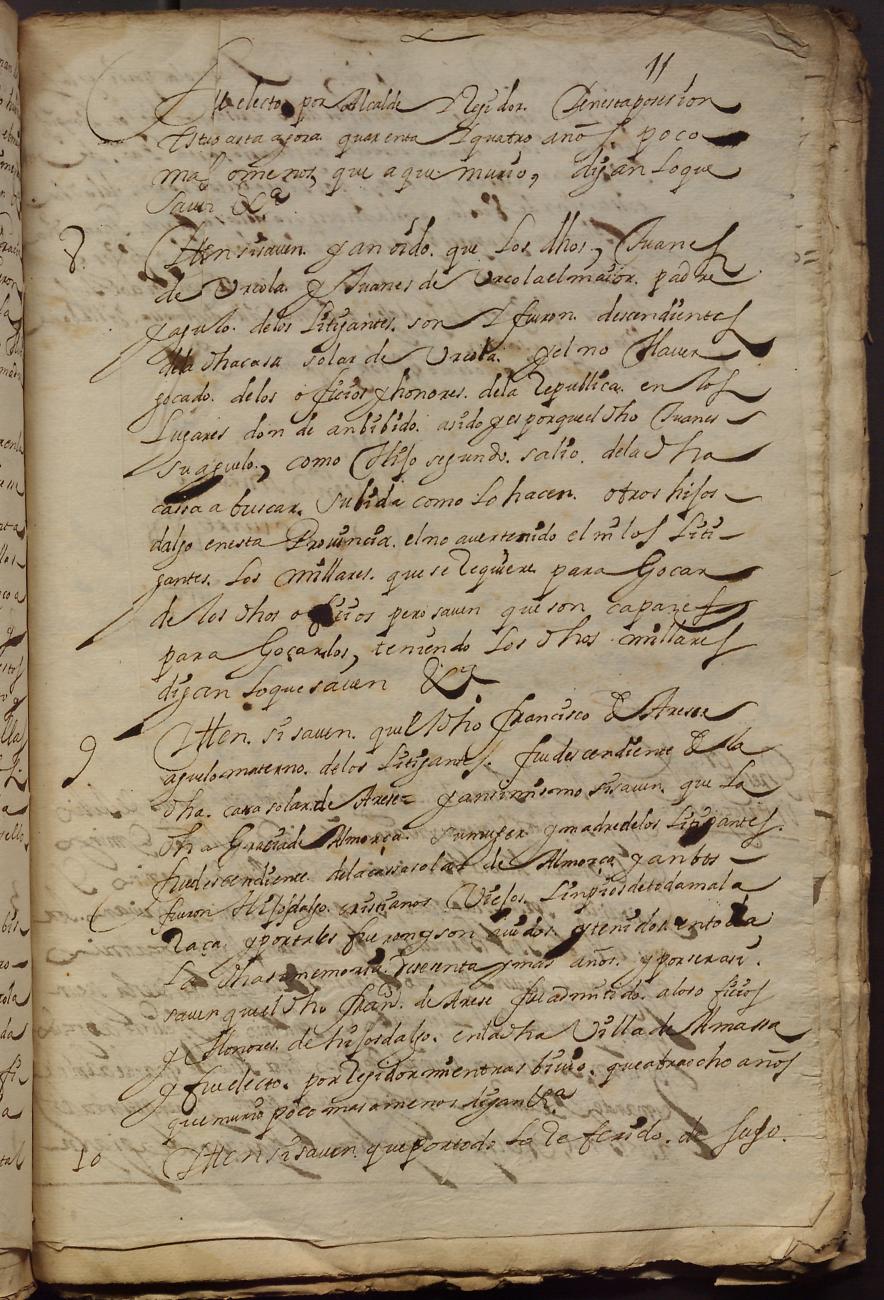 11
fue electo por Alcalde y Rejidor. y en esta posesion
estuo asta agora quarenta y quatro años poco
mas omenos, que a que murio, digan loque
saven &ª
8 Itten si saven. y an oido. que Los dhos, Juanes
de Urcola y Juanes de Urcola el maior. padre
y aguelo. delos Litigantes. son y fueron. descendientes
dela dha casa solar de Urcola. y el no Haver
goçado. delos officios y honores. dela Republica. en los
Lugares don de an bibido. a sido y es porque el dho Juanes
su aguelo, como Hijo segundo. salio. dela dha
cassa a buscar. su bida como Lo hacen. otros hijos
dalgo en esta Provincia. el no aver tenido el ni los Liti
gantes. Los millares. que se Requiere para Goçar
de los dhos officios pero saven que son capaçes
para Goçarlos, teniendo Los dhos millares
digan loque saven &ª
9 Itten. si saven. que el dho francisco de Arese
aguelo materno. delos Litigantes. fue descendiente de la
dha. casa solar de Arese y ansimismo si saven que La
dha Graciade Almorça. su muger y madre delos Litigantes.
fue descendiente. dela cassa solar de Almorça y anbos
fueron Hijosdalgo. cristianos Viejos. Linpios de toda mala
Raça y por tales fueron y son avidos y tenidos en toda
La dha memoria de sesenta y mas años. y por ser asi.
saven que el dho fran.co de Arese fue admitido. a los officios
y Honores. de hijosdalgo. en la dha Villa de Almassa
y fue electo. por Rejidor mientras bivio. que abra ocho años
que murio poco mas a menos digan &ª
10 Itten si saven. que por todo Lo Referido. de suso.